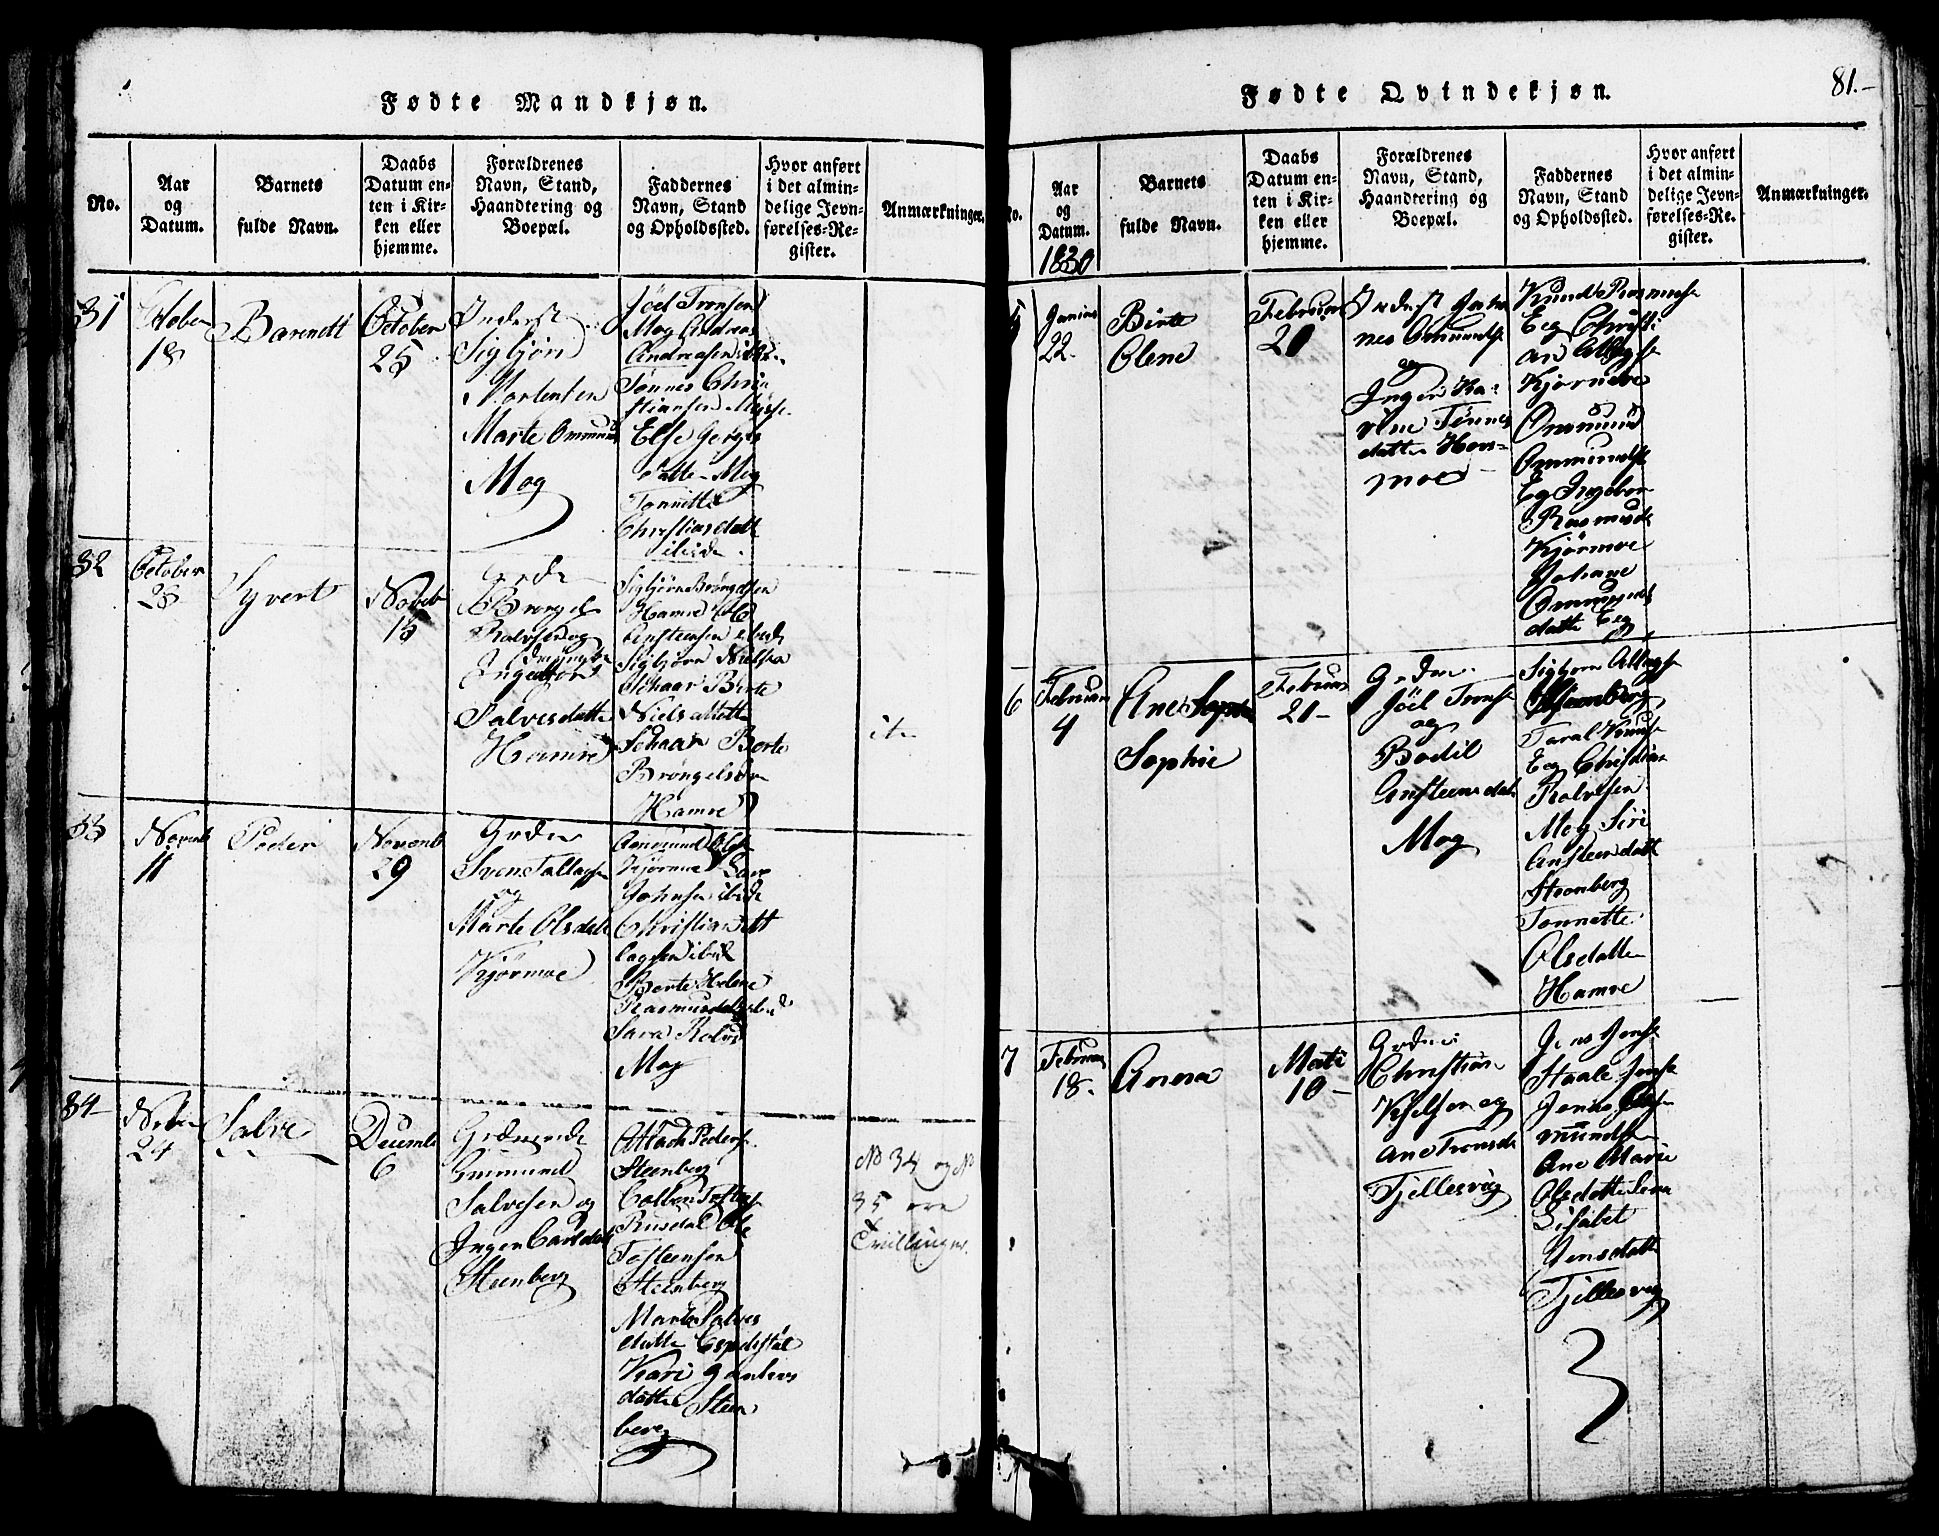 Fødte Mandkjøn.
No.
Aar
og
Datum.
Barnets
fulde Navn.
Daabs
Datum en-
ten i Kir-
ken eller
hjemme.
Forældrenes
Navn, Stand,
Haandtering og
Boepæl.
Faddernes
Navn, Stand
og Opholdssted.
Hvor anført
i det almin-
delige Jevn-
førelses-Re-
gister.
Anmærkninger.
31
October
18
Barendt
October
25
Inderst
Sigbjørn
Mortensen
Marte Ommund
Mog
Joel Tronsen
Mog Andreas
Andreasen ibid.
Tønnes Chri
stiansen
Else Gerges
datte Mog
Tonnette
Christiansdatt
ibid.
32
October
28
Syvert
Noveb
15
Grde
Brongel
Rolvsen og
Ingebor
Salvesdatte
Hamre
Sigbjørn Brøngelsen
Hamre Ole
Anstensen ibid
Sigbjørn Nielsen
Schaar Berte
Nielsdatte
Schaar Berte
Brøngelsdr
Hamre
33
Novemb
11
Peder
Novemb
29
Grdm
Sven Tallagsen
og
Marte Olsdatt
Kjørmoe
Aanmund Ols
Kjørmoe Lars
Johnsen ibid
Christian Att
lagsen ibid
Berte Helene
Rasmusdatt ibid
Sara Rolvs
Mog
34
Novbr
24
Salve
Decembr
6
Grdmænd
Gunmund
Salvesen og
Inger Carlsdatt
Steenberg
Attlach Peders.
Steenberg
Colben Tostens
Rusdal Ole
Tosteensen
Steenberg
Marte Salves
datte Espelstøl
Kari Gunlevs
datte Steen
berg
No 34 og No
35 ere
Tvillinger.
81.-
Fødte Qvindekjøn.
No.
Aar
og
Datum.
1830
Barnets
fulde Navn.
Daabs
Datum en-
ten i Kir-
ken eller
hjemme.
Forældrenes
Navn, Stand,
Haandtering og
Boepæl.
Faddernes
Navn, Stand
og Opholdssted.
Hvor anført
i det almin-
delige Jevn-
førelses-Re-
gister.
Anmærkninger.
5
Januar
22.
Birte
Olene
Februar
20
Inderst Johan
nes Ommundsen
og
Inger Ka-
rine Tønnes
datter Hors-
moe
Knud Rasmusse
Eeg Christi
an Attlagse
Kjørmoe
Ommund
Ommundse
Eeg Ingebor
Rasmusd
Kjørmoe
Johane
Ommunds
datte Eeg
6
Februar
4
Ane Sophie
Sophie
Februar
21-
Grdm
Joel Trons
og
Bodil
Ansteensdatt
Mog
Sigbjørn Attlagse
Steenberg
Taral Knuds
Eeg Christian
Rolvsen
Mog Siri
Ansteensdatt
Steenberg
Tonnette
Olsdatte
Hamre
7
Februar
18.
Anna
Marti
10-
Grdm
Christian
Kjelsen og
Ane Tronsd
Fjellesvig
Jens Jense
Staale Jense
mundse
Ane Marie
Olsdatte
Lisabet
Jensdatte
Fjellesvig